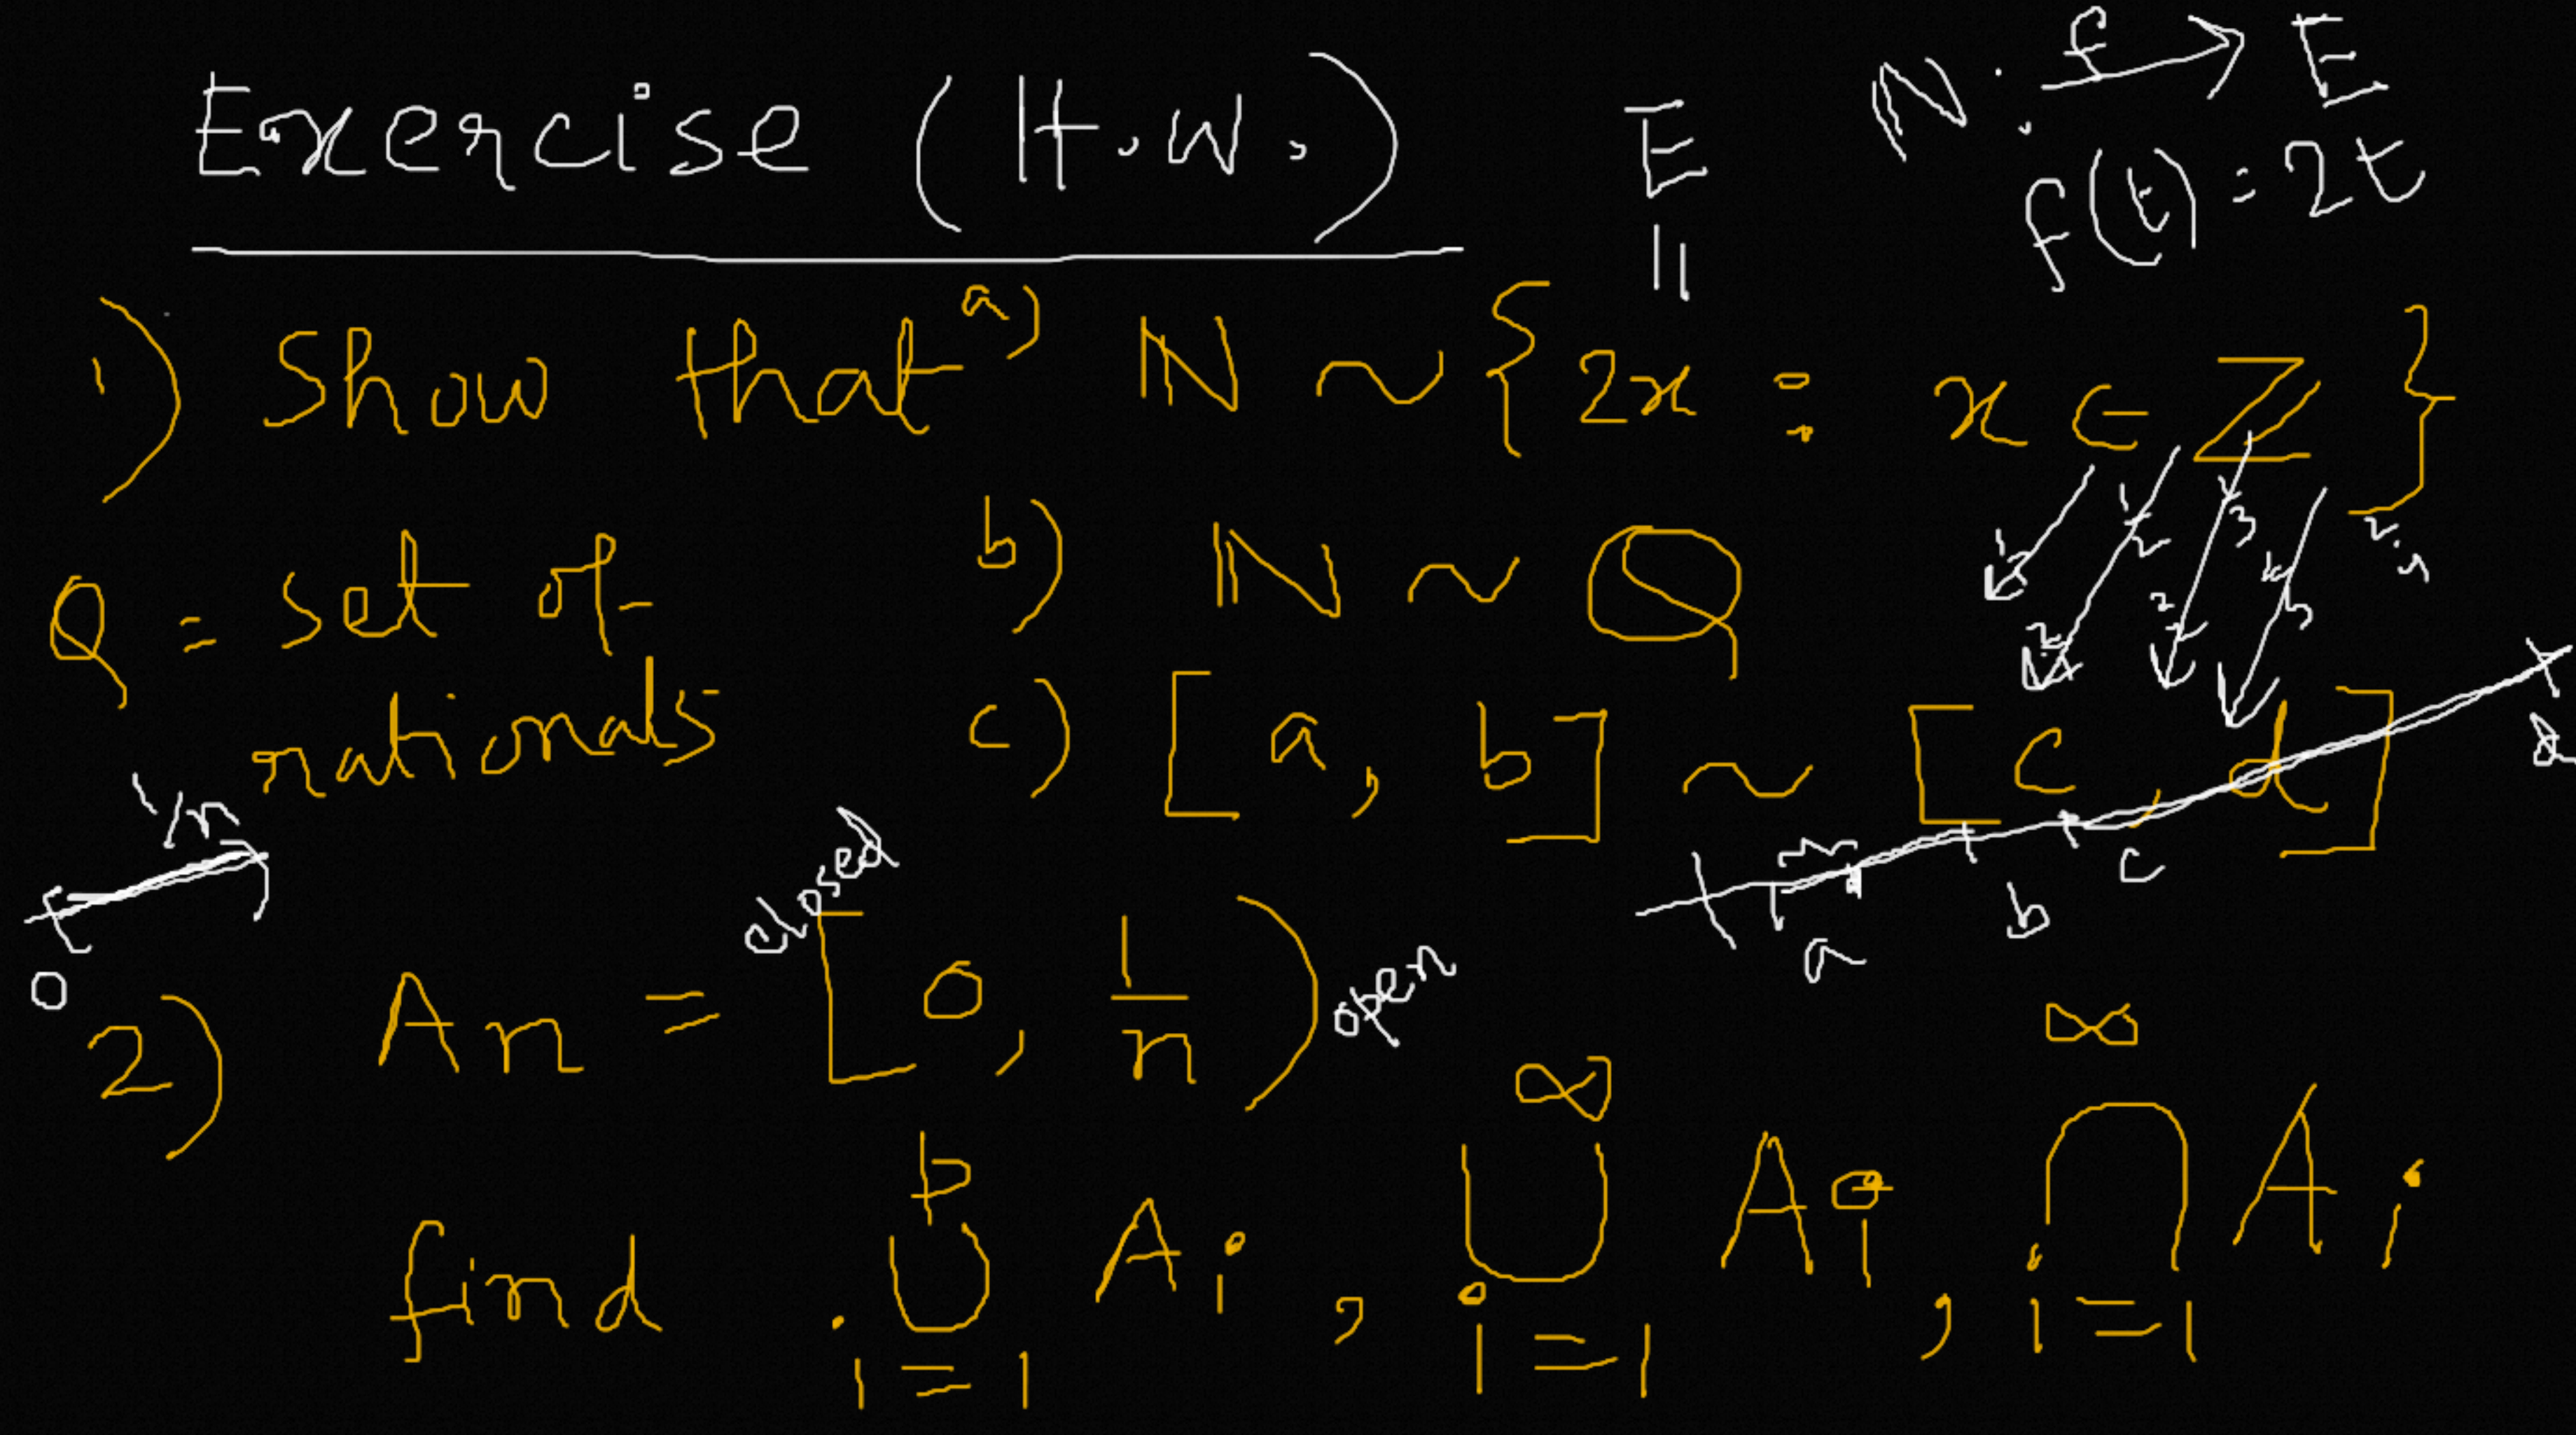 Exercise (H.W.)
E
||
N : f → E
f(t) = 2t
1) Show that a) ℕ ~ {2x : x ∈ ℤ}
Q = set of rationals
b) ℕ ~ Q
c) [a, b] ~ [c, d]
1/n
0
a b c d
closed
open
2) An = [0, 1/n)
find ⋃_{i=1}^{p} Ai, ⋃_{i=1}^{∞} Ai, ⋂_{i=1}^{∞} Ai